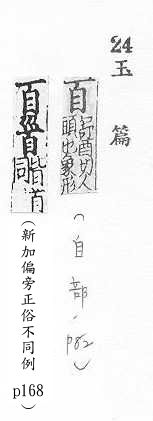 24 玉篇
𦣻 舒酉切人頭也象形（自部，p82）
𦣻 首（新加偏旁正俗不同例 p168）